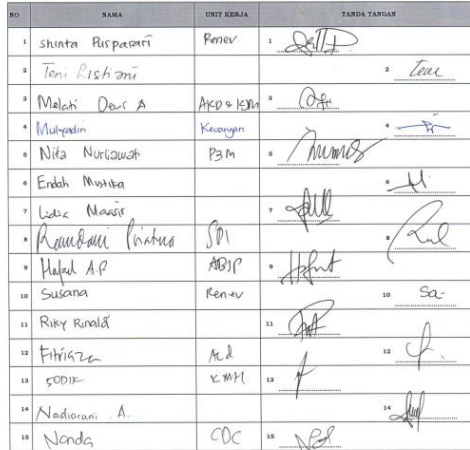 NO NAMA UNIT KERJA TANDA TANGAN
1 Shinta Puspasari Renev 1
2 Teni Listiani 2
3 Melati Dewi A 3
4 Mulyadin Keuangan 4
5 Nita Nurliawati P3M 5
6 Endah Mustika 6
7 Lidia Maasir 7
8 SPI 8
9 A.P 9
10 Susana Renev 10 Sa-
11 Riky Rinaldi 11
12 Fitriaza 12
13 SODIK KMH 13
14 Nadiarani A. 14
15 Nanda CDC 15